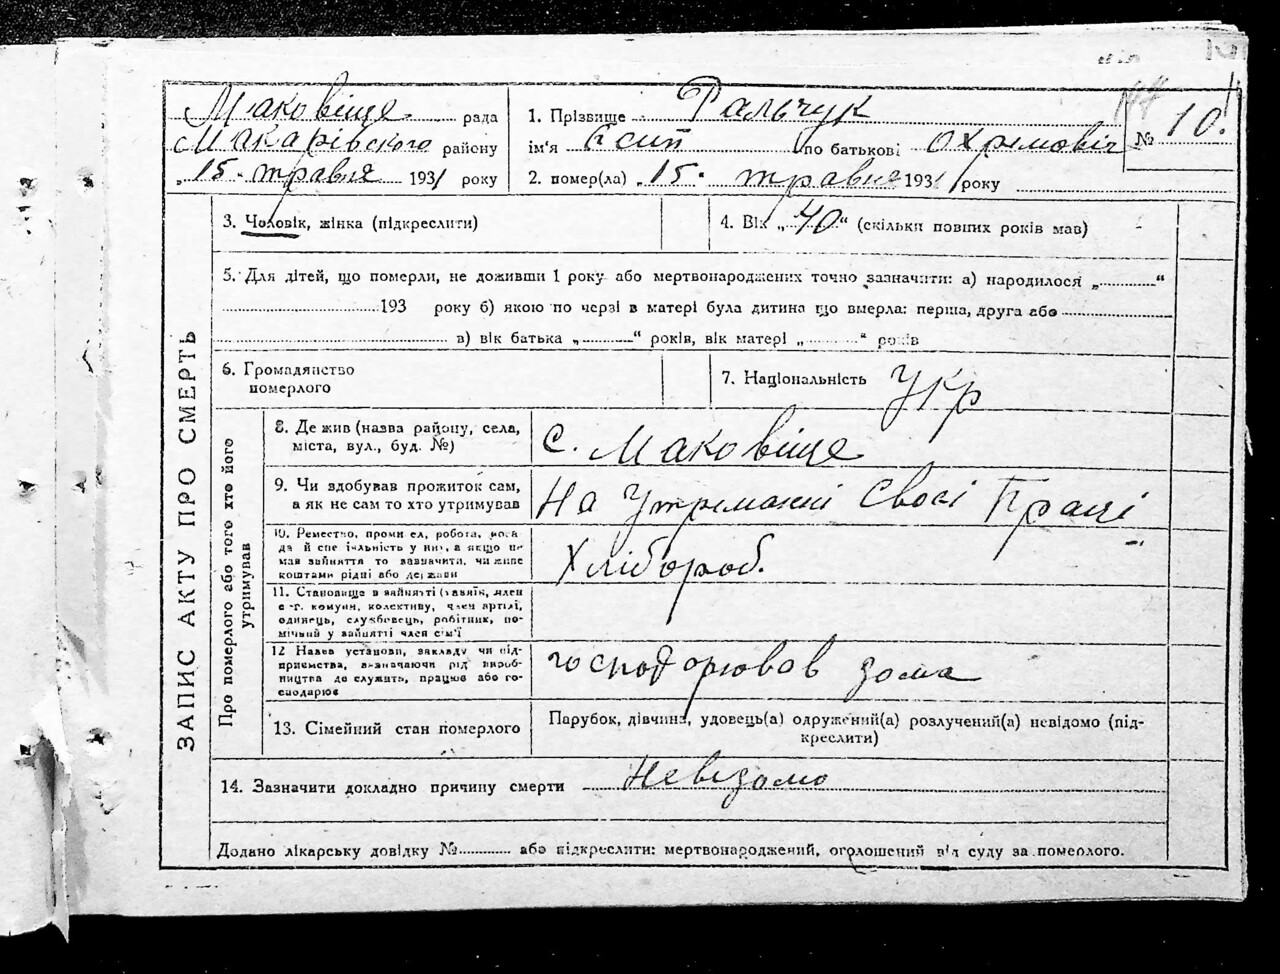 Маковіще рада
Макарівского району
„15. травня 1931 року
1. Прізвище Ральчук
ім'я по батькові Охремовіч
2. помер(ла) „15. травня 1931 року
№ 10.
ЗАПИС АКТУ ПРО СМЕРТЬ
3. Чоловік, жінка (підкреслити)
4. Вік „40“ (скільки повних років мав)
5. Для дітей, що померли, не доживши 1 року або мертвонароджених точно зазначити: а) народилося „............“
193 року б) якою по черзі в матері була дитина що вмерла: перша, друга або
в) вік батька „............“ років, вік матері „............“ років
6. Громадянство
померлого
7. Національність Укр
Про померлого або того хто його
утримував
8. Де жив (назва району, села,
міста, вул., буд. №)
с. Маковіще
9. Чи здобував прожиток сам,
а як не сам то хто утримував
На Утреманні Своєї Праці
10. Ремество, проми ел, робота, пога
да й спе іальність у ни, а якщо не
мав зайняття то зазначити, чи живе
коштами рідні або держави
Хлібороб.
11. Становище в зайнятті (хазяїн, член
с-г. комуни, колективу, член артілі,
одинець, службовець, робітник, по-
мічний у зайнятті член сім'ї
12 Назва установи, закладу чи під-
приємства, визначаючи рід вироб-
ництва де служить, працює або го-
сподарює
господорював дома
13. Сімейний стан померлого
Парубок, дівчина, удовець(а) одружений(а) розлучений(а) невідомо (під-
креслити)
14. Зазначити докладно причину смерти Невідомо
Додано лікарську довідку №............ або підкреслити: мертвонароджений, оголошений від суду за померлого.